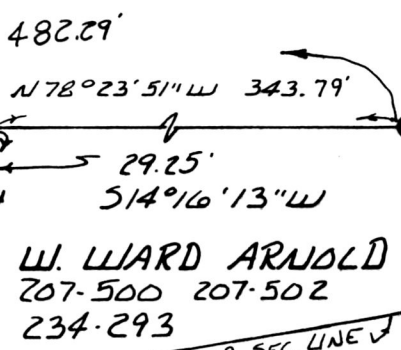 482.29'
N 78°23'51" W 343.79'
29.25'
S14°16'13"W
W. WARD ARNOLD
207-500 207-502
234-293
SEC LINE